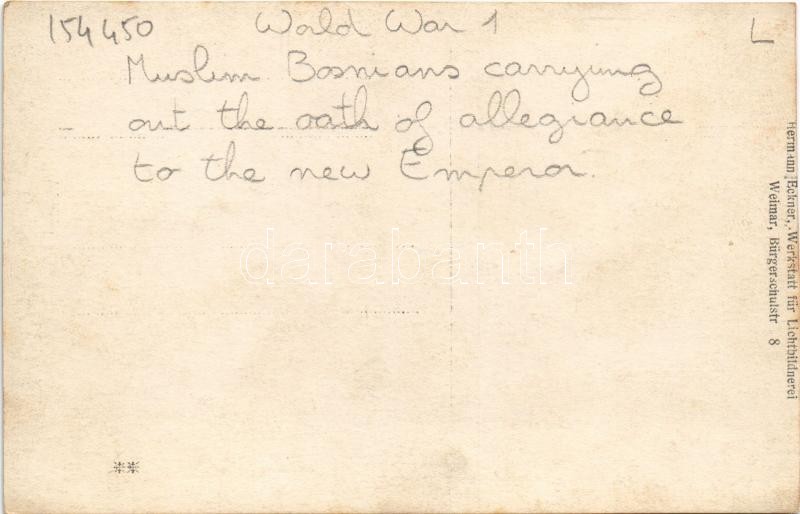 154450 World War 1 L
Muslim Bosnians carrying
out the oath of allegiance
to the new Emperor.
darabanth
Hermann Eckner, Werkstatt für Lichtbildnerei
Weimar, Bürgerschulstr 8